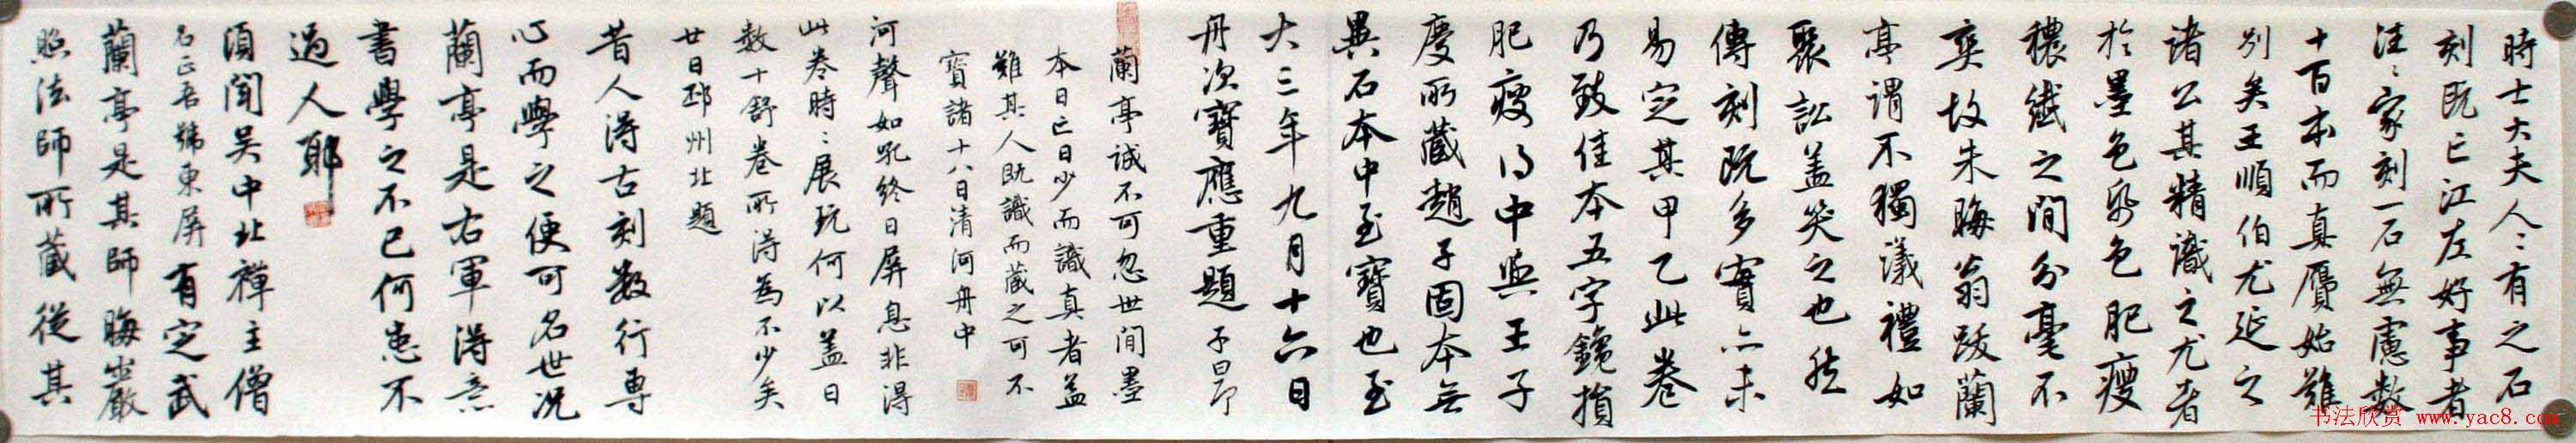 時士大夫人〻有之石
刻既亡江左好事者
往〻家刻一石無慮數
十百本而真贗始難
別矣王順伯尤延之
諸公其精識之尤者
於墨色紙色肥瘦
穠纖之間分毫不
爽故朱晦翁跋蘭
亭謂不獨議禮如
聚訟盖笑之也然
傳刻既多實亦未
易定其甲乙此卷
乃致佳本五字鑱損
肥瘦得中與王子
慶所藏趙子固本無
異石本中至寶也至
大三年九月十六日
舟次寶應重題 子昂
蘭亭誠不可忽世間墨
本日亡日少而識真者益
難其人既識而藏之可不
寶諸十八日清河舟中
河聲如吼終日屏息非得
此卷時〻展玩何以盖日
數十舒卷所得為不少矣
廿日邳州北題
昔人得古刻數行專
心而學之便可名世况
蘭亭是右軍得意
書學之不已何患不
過人耶
頃聞吴中北禪主僧
名正吾號東屏有定武
蘭亭是其師晦巖
照法師所藏從其
书法欣赏 www.yac8.com